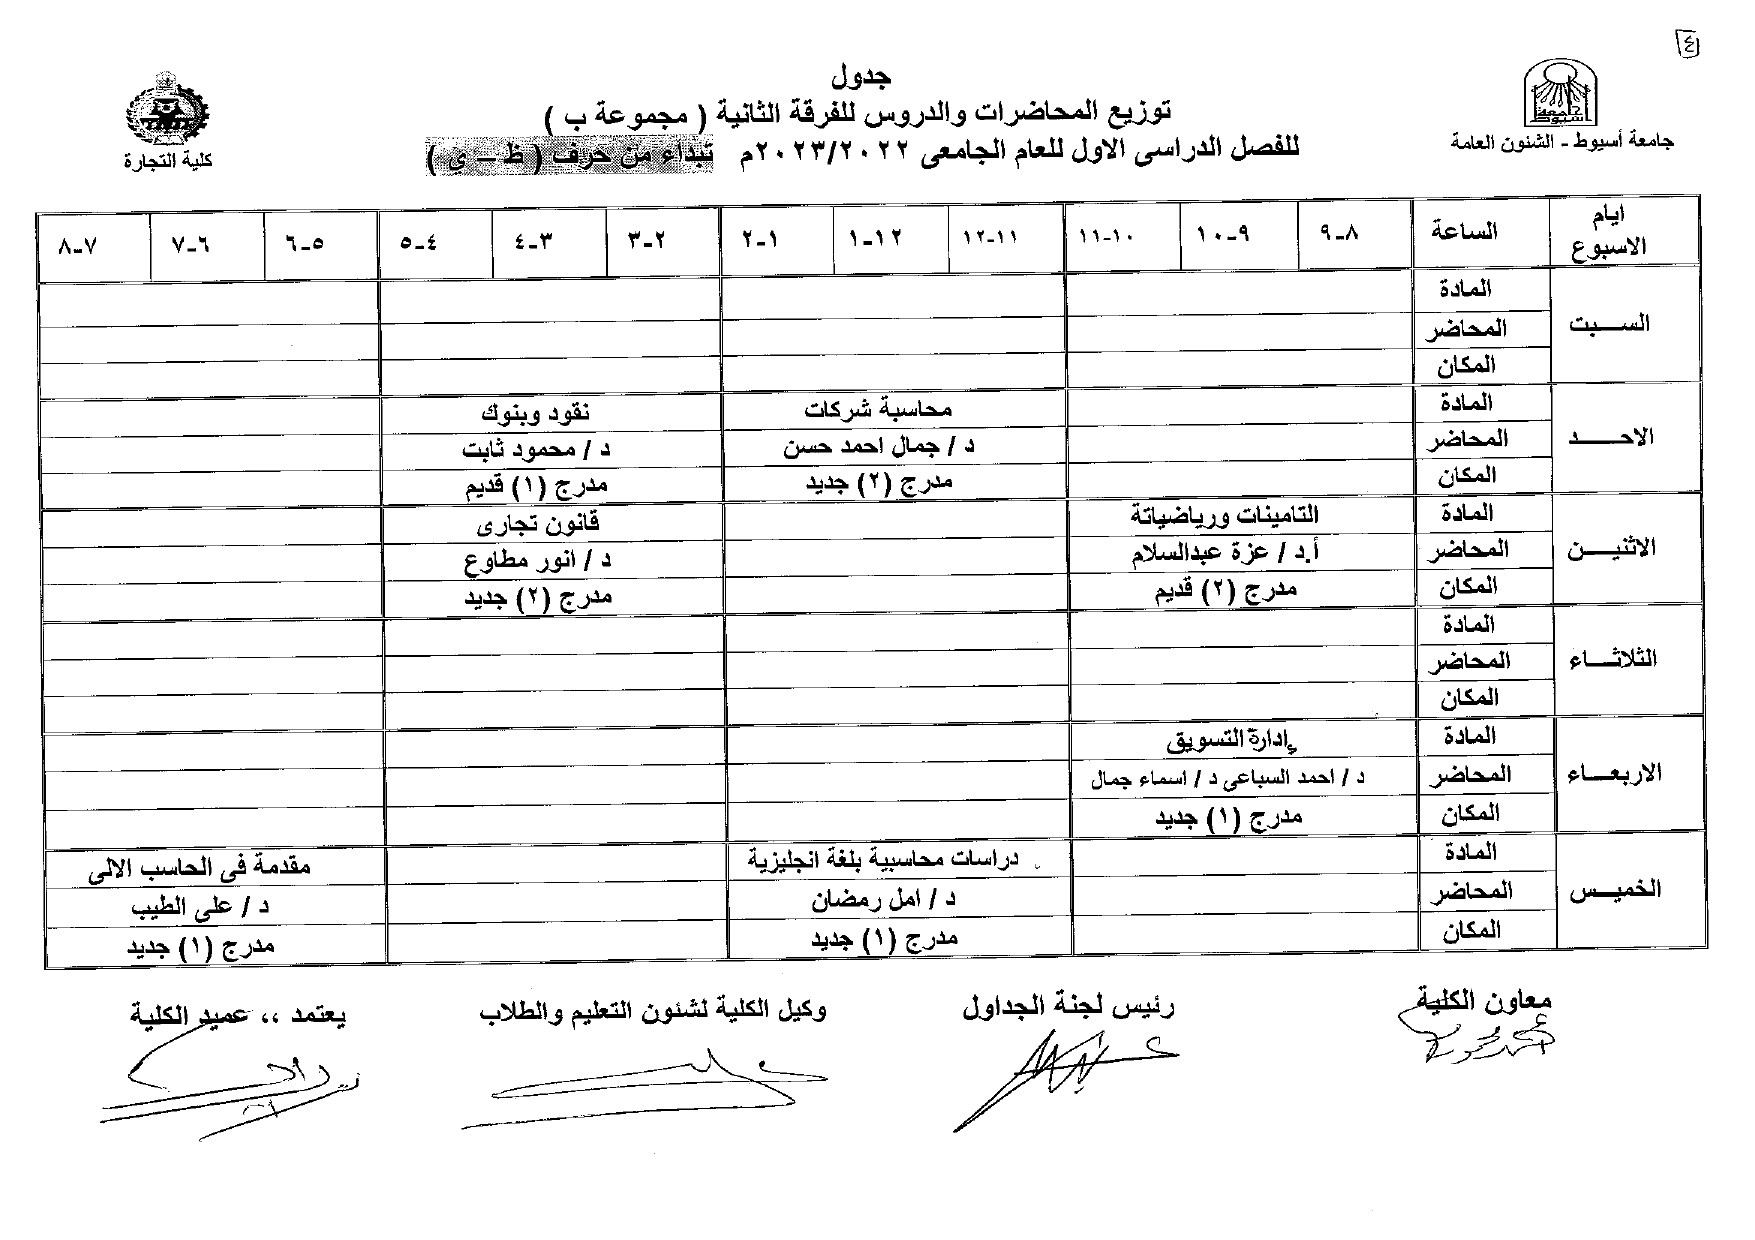 ٤
جدول
توزيع المحاضرات والدروس للفرقة الثانية ( مجموعة ب )
للفصل الدراسى الاول للعام الجامعى ٢٠٢٣/٢٠٢٢م تبداء من حرف ( ظ – ى )
جامعة أسيوط - الشئون العامة
كلية التجارة
ايام الاسبوع الساعة ٨-٩ ٩-١٠ ١٠-١١ ١١-١٢ ١٢-١ ١-٢ ٢-٣ ٣-٤ ٤-٥ ٥-٦ ٦-٧ ٧-٨
السبت
المادة
المحاضر
المكان
الاحد
المادة محاسبة شركات نقود وبنوك
المحاضر د / جمال احمد حسن د / محمود ثابت
المكان مدرج (٢) جديد مدرج (١) قديم
الاثنين
المادة التامينات ورياضياتة قانون تجارى
المحاضر أ.د / عزة عبدالسلام د / انور مطاوع
المكان مدرج (٢) قديم مدرج (٢) جديد
الثلاثاء
المادة
المحاضر
المكان
الاربعاء
المادة إدارة التسويق
المحاضر د / احمد السباعى د / اسماء جمال
المكان مدرج (١) جديد
الخميس
المادة دراسات محاسبية بلغة انجليزية مقدمة فى الحاسب الالى
المحاضر د / امل رمضان د / على الطيب
المكان مدرج (١) جديد مدرج (١) جديد
معاون الكلية رئيس لجنة الجداول وكيل الكلية لشئون التعليم والطلاب يعتمد ،، عميد الكلية